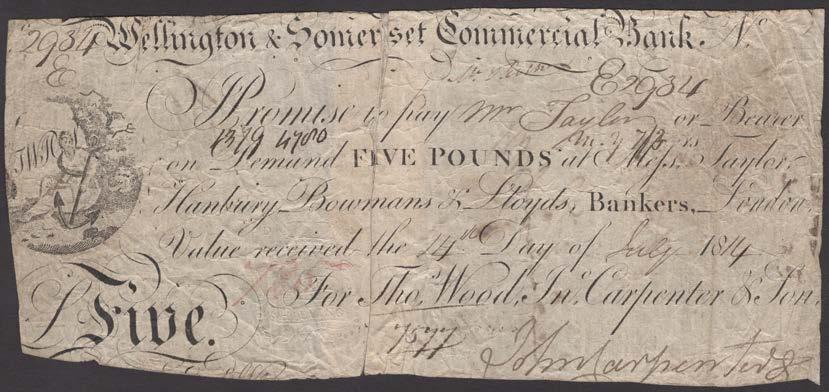 2934 Wellington & Somerset Commercial Bank. No
E
E2934
I Promise to pay Mr Taylor or Bearer
1379 4780
on Demand FIVE POUNDS at Messrs. Taylor,
Hanbury, Bowmans & Lloyds, Bankers, London.
Value received the 14th Day of July 1814
For Thos. Wood, Jno. Carpenter & Son.
£ Five.
John Carpenter